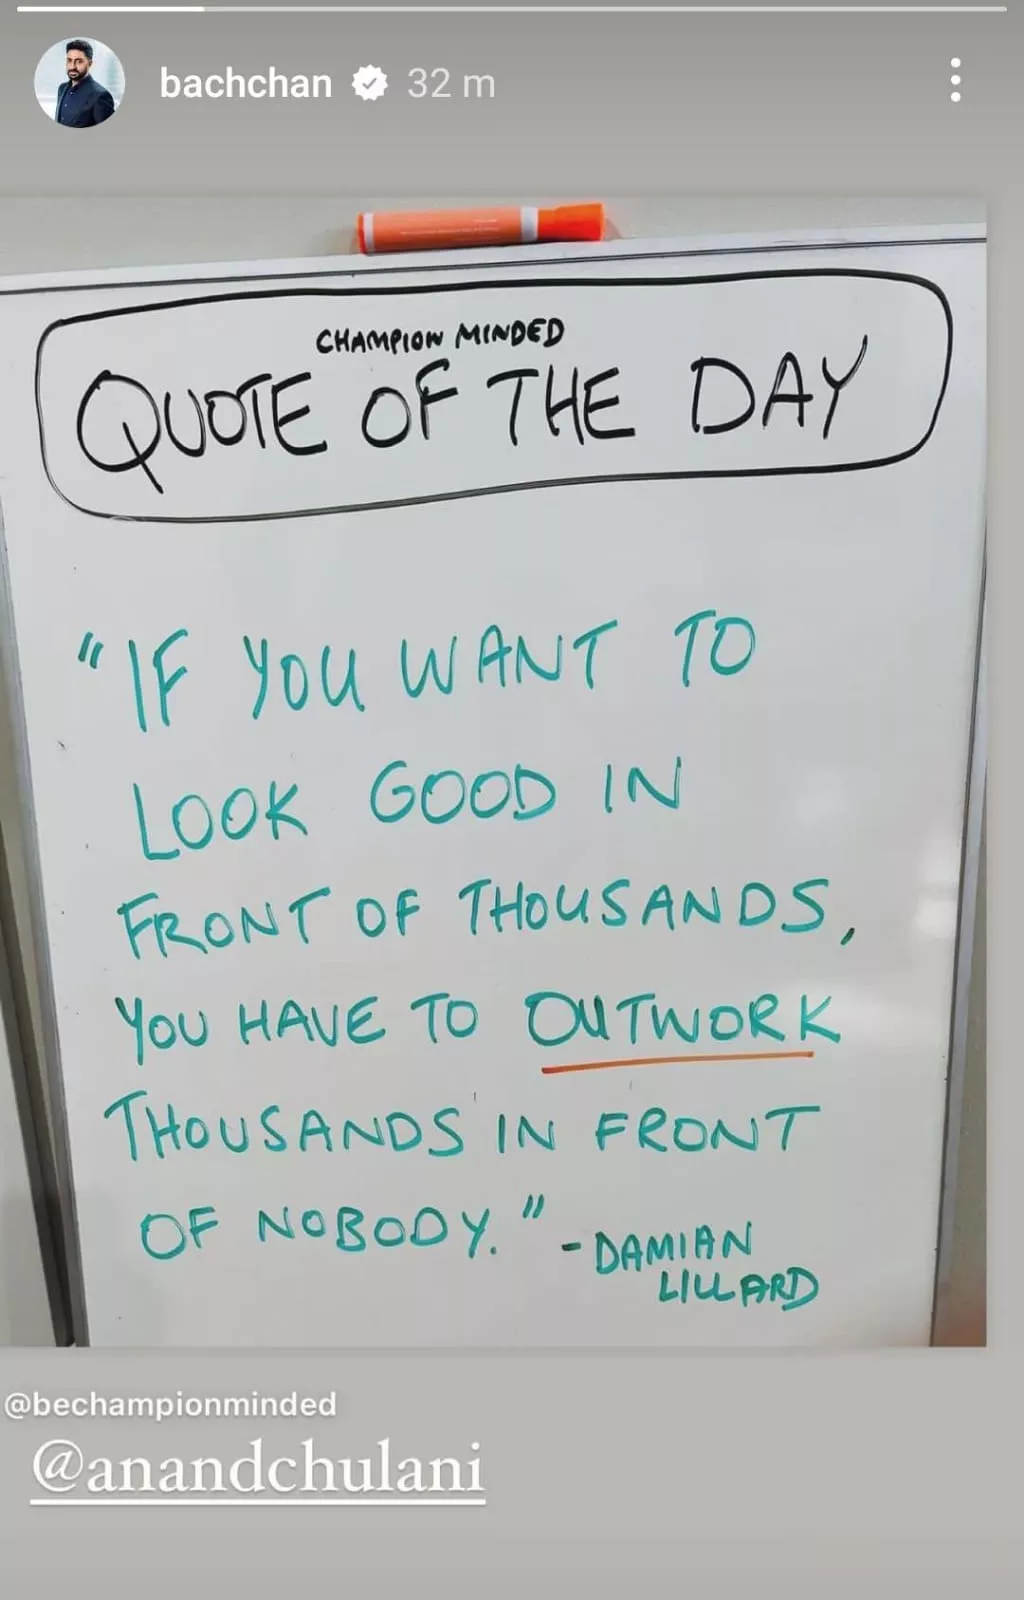 bachchan 32 m
CHAMPION MINDED
QUOTE OF THE DAY
"IF YOU WANT TO
LOOK GOOD IN
FRONT OF THOUSANDS,
YOU HAVE TO OUTWORK
THOUSANDS IN FRONT
OF NOBODY."
- DAMIAN
LILLARD
@bechampionminded
@anandchulani